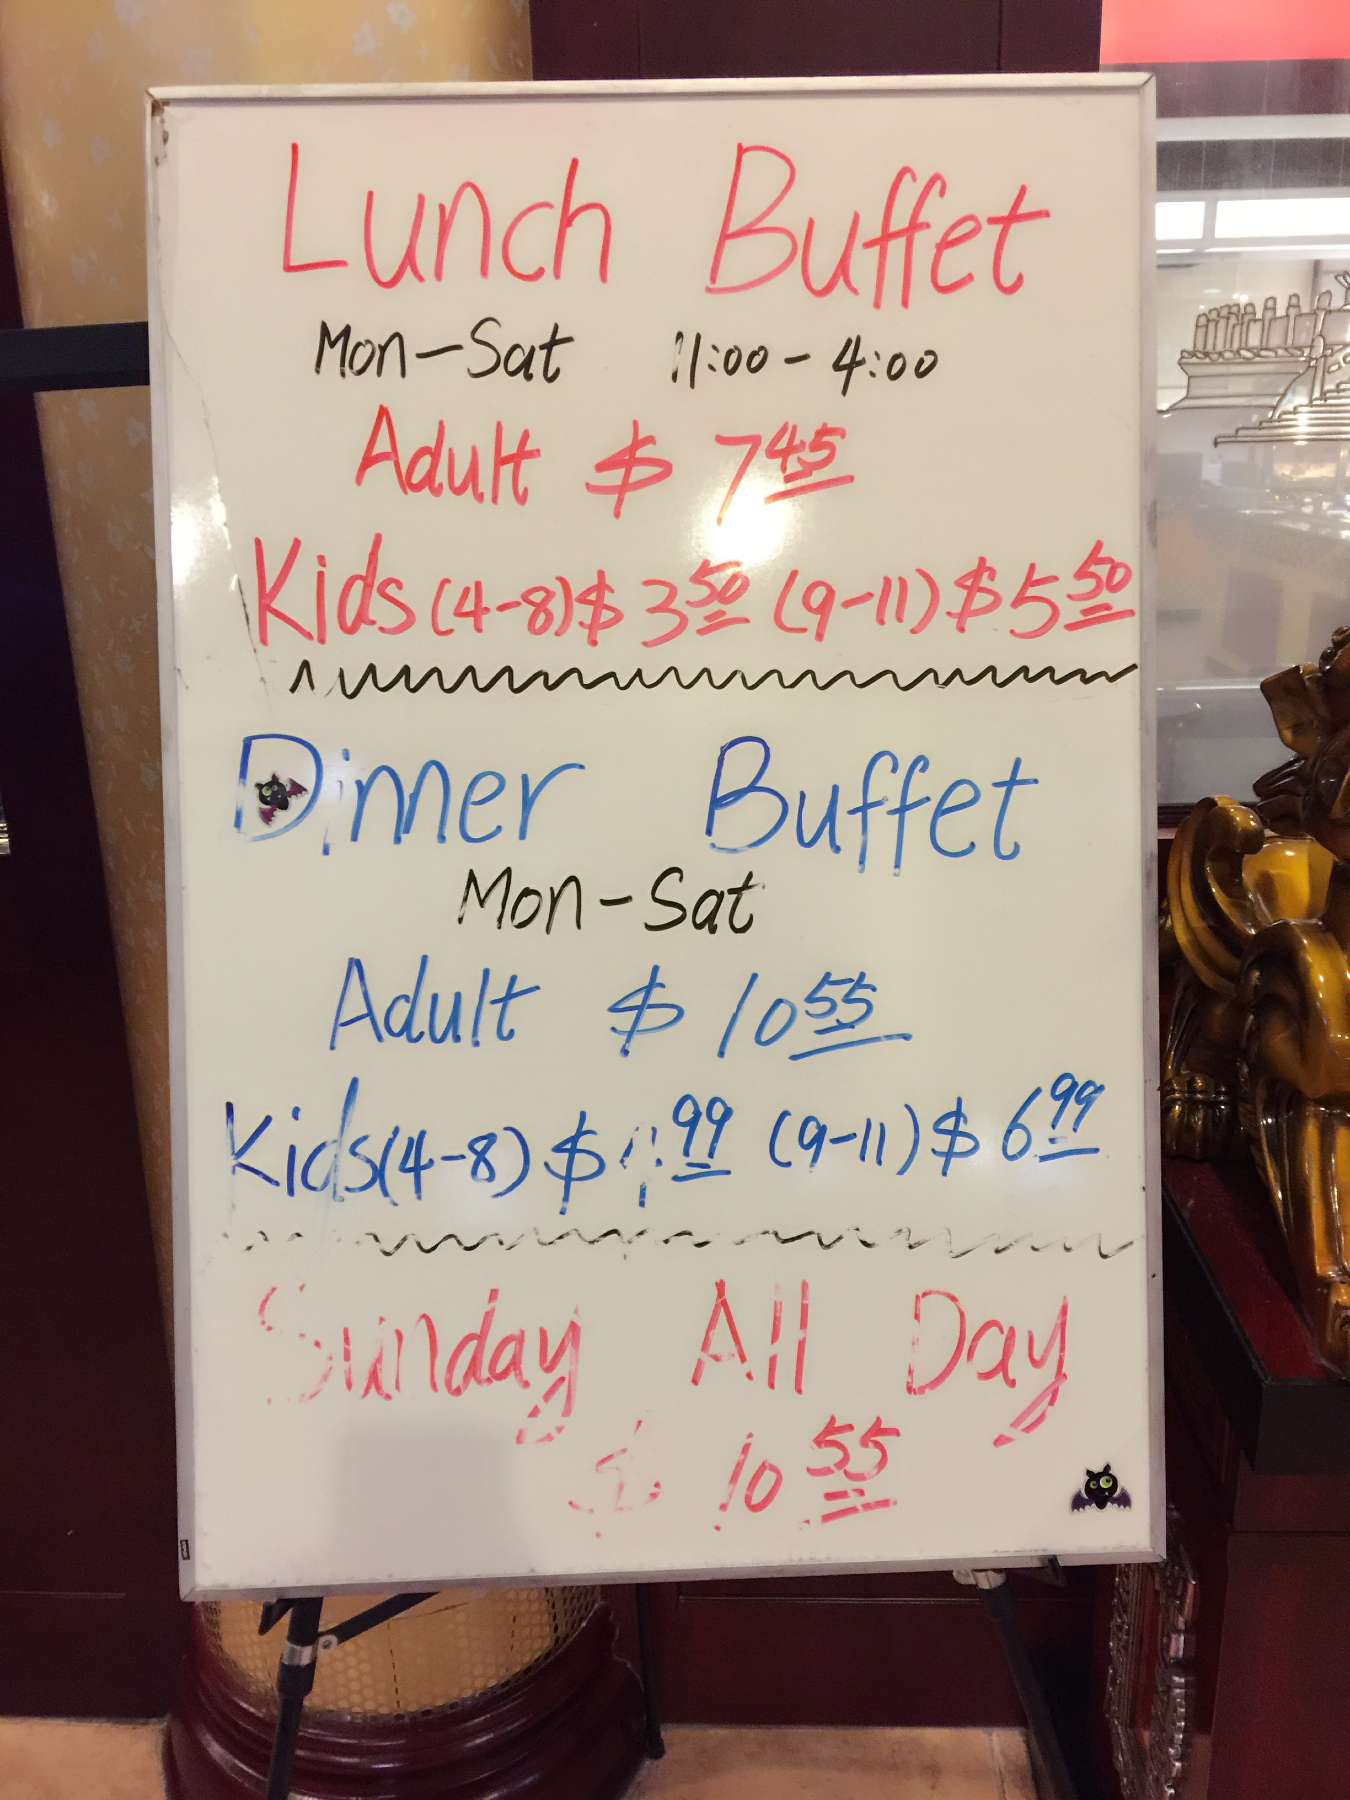 Lunch Buffet
Mon-Sat 11:00-4:00
Adult $ 7 45
Kids (4-8) $ 3 50 (9-11) $ 5 50
Dinner Buffet
Mon-Sat
Adult $ 10 55
Kids (4-8) $ 99 (9-11) $ 6 99
Sunday All Day
$ 10 55